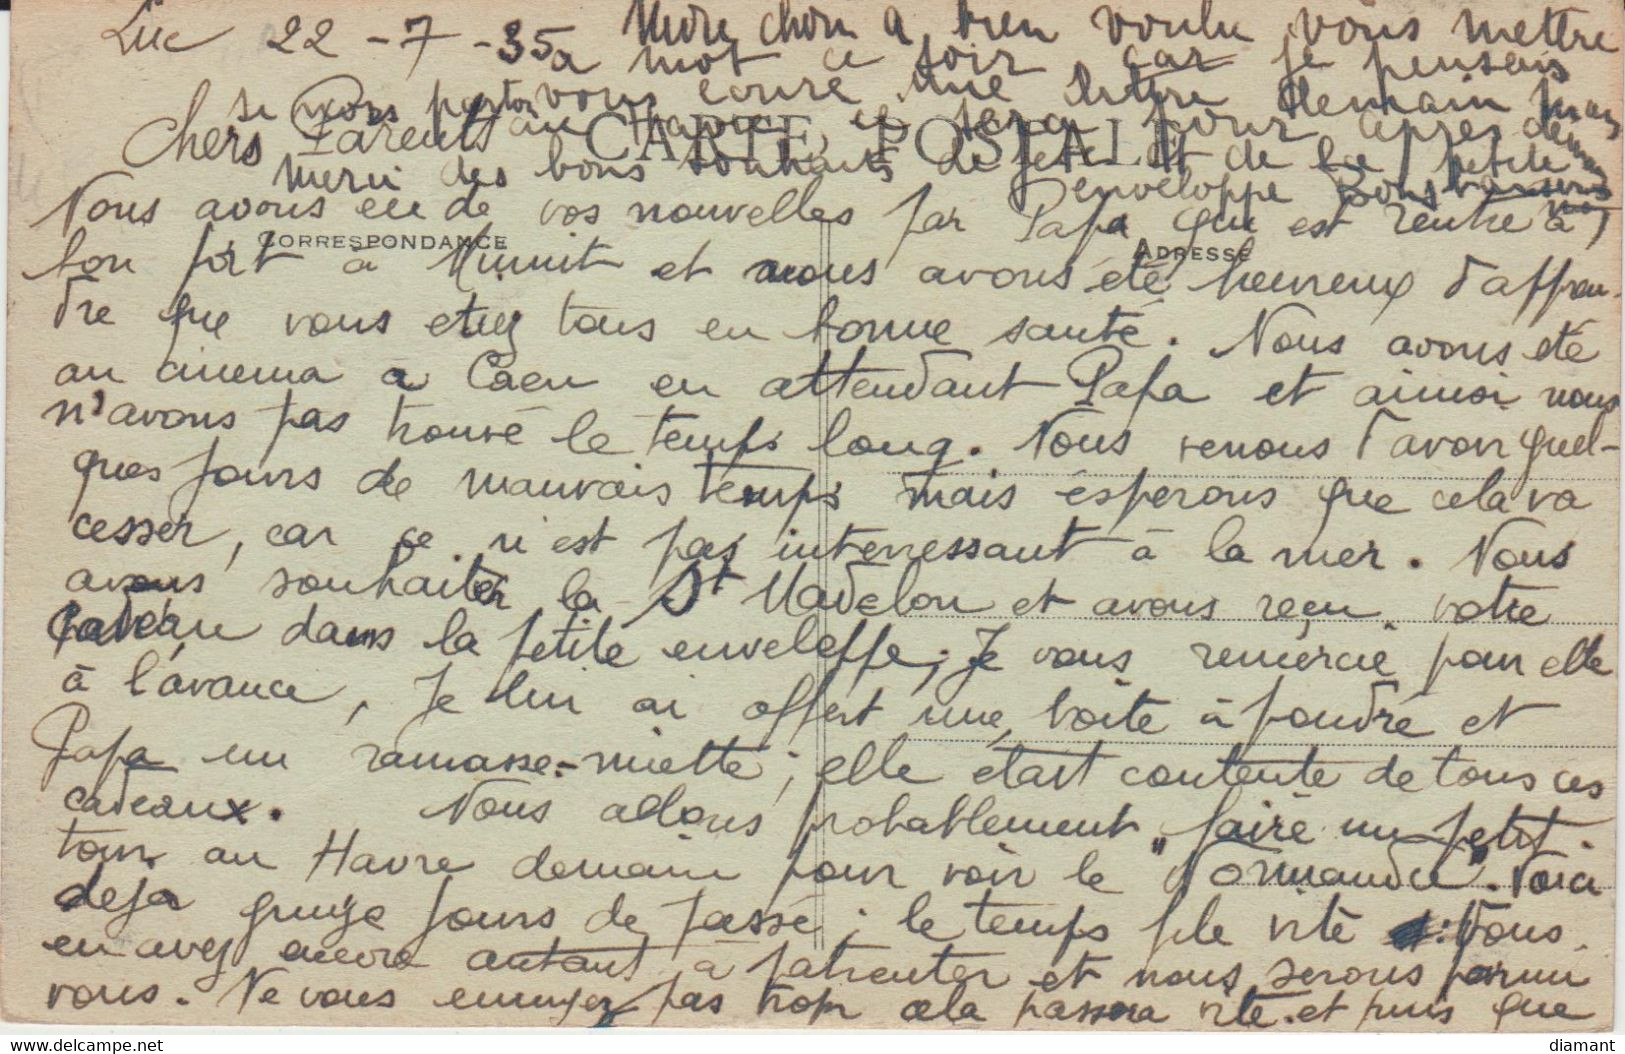 Luc 22-7-35
Mon chou a bien voulu vous mettre
a mot ce soir car je pensais
vous écrire une lettre demain mais
si nous partons au Havre ce sera pour après demain
CARTE POSTALE
Chers Parents
Merci des bons souhaits de fête et de la petite
enveloppe Bons baisers
Nous avons eu de vos nouvelles par Papa qui est rentré à
CORRESPONDANCE
ADRESSE
bon port à Minuit et nous avons été heureux d'appren-
dre que vous etiez tous en bonne santé. Nous avons eté
au cinema à Caen en attendant Papa et ainsi nous
n'avons pas trouvé le temps long. Nous venons d'avoir quel-
ques jours de mauvais temps mais esperons que cela va
cesser, car ce n'est pas interressant à la mer. Nous
avons souhaiter la St Madelon et avons reçu votre
cadeau dans la petite enveloppe; Je vous remercie pour elle
à l'avance, Je lui ai offert une boite à poudre et
Papa un ramasse-miette; elle était contente de tous ces
cadeaux. Nous allons probablement faire un petit
tour au Havre demain pour voir le "Normandie". Voici
deja quinze jours de passé; le temps file vite: Vous
en avez encore autant à patienter et nous serons parmi
vous. Ne vous ennuyez pas trop cela passera vite et puis que
www.delcampe.net
diamant